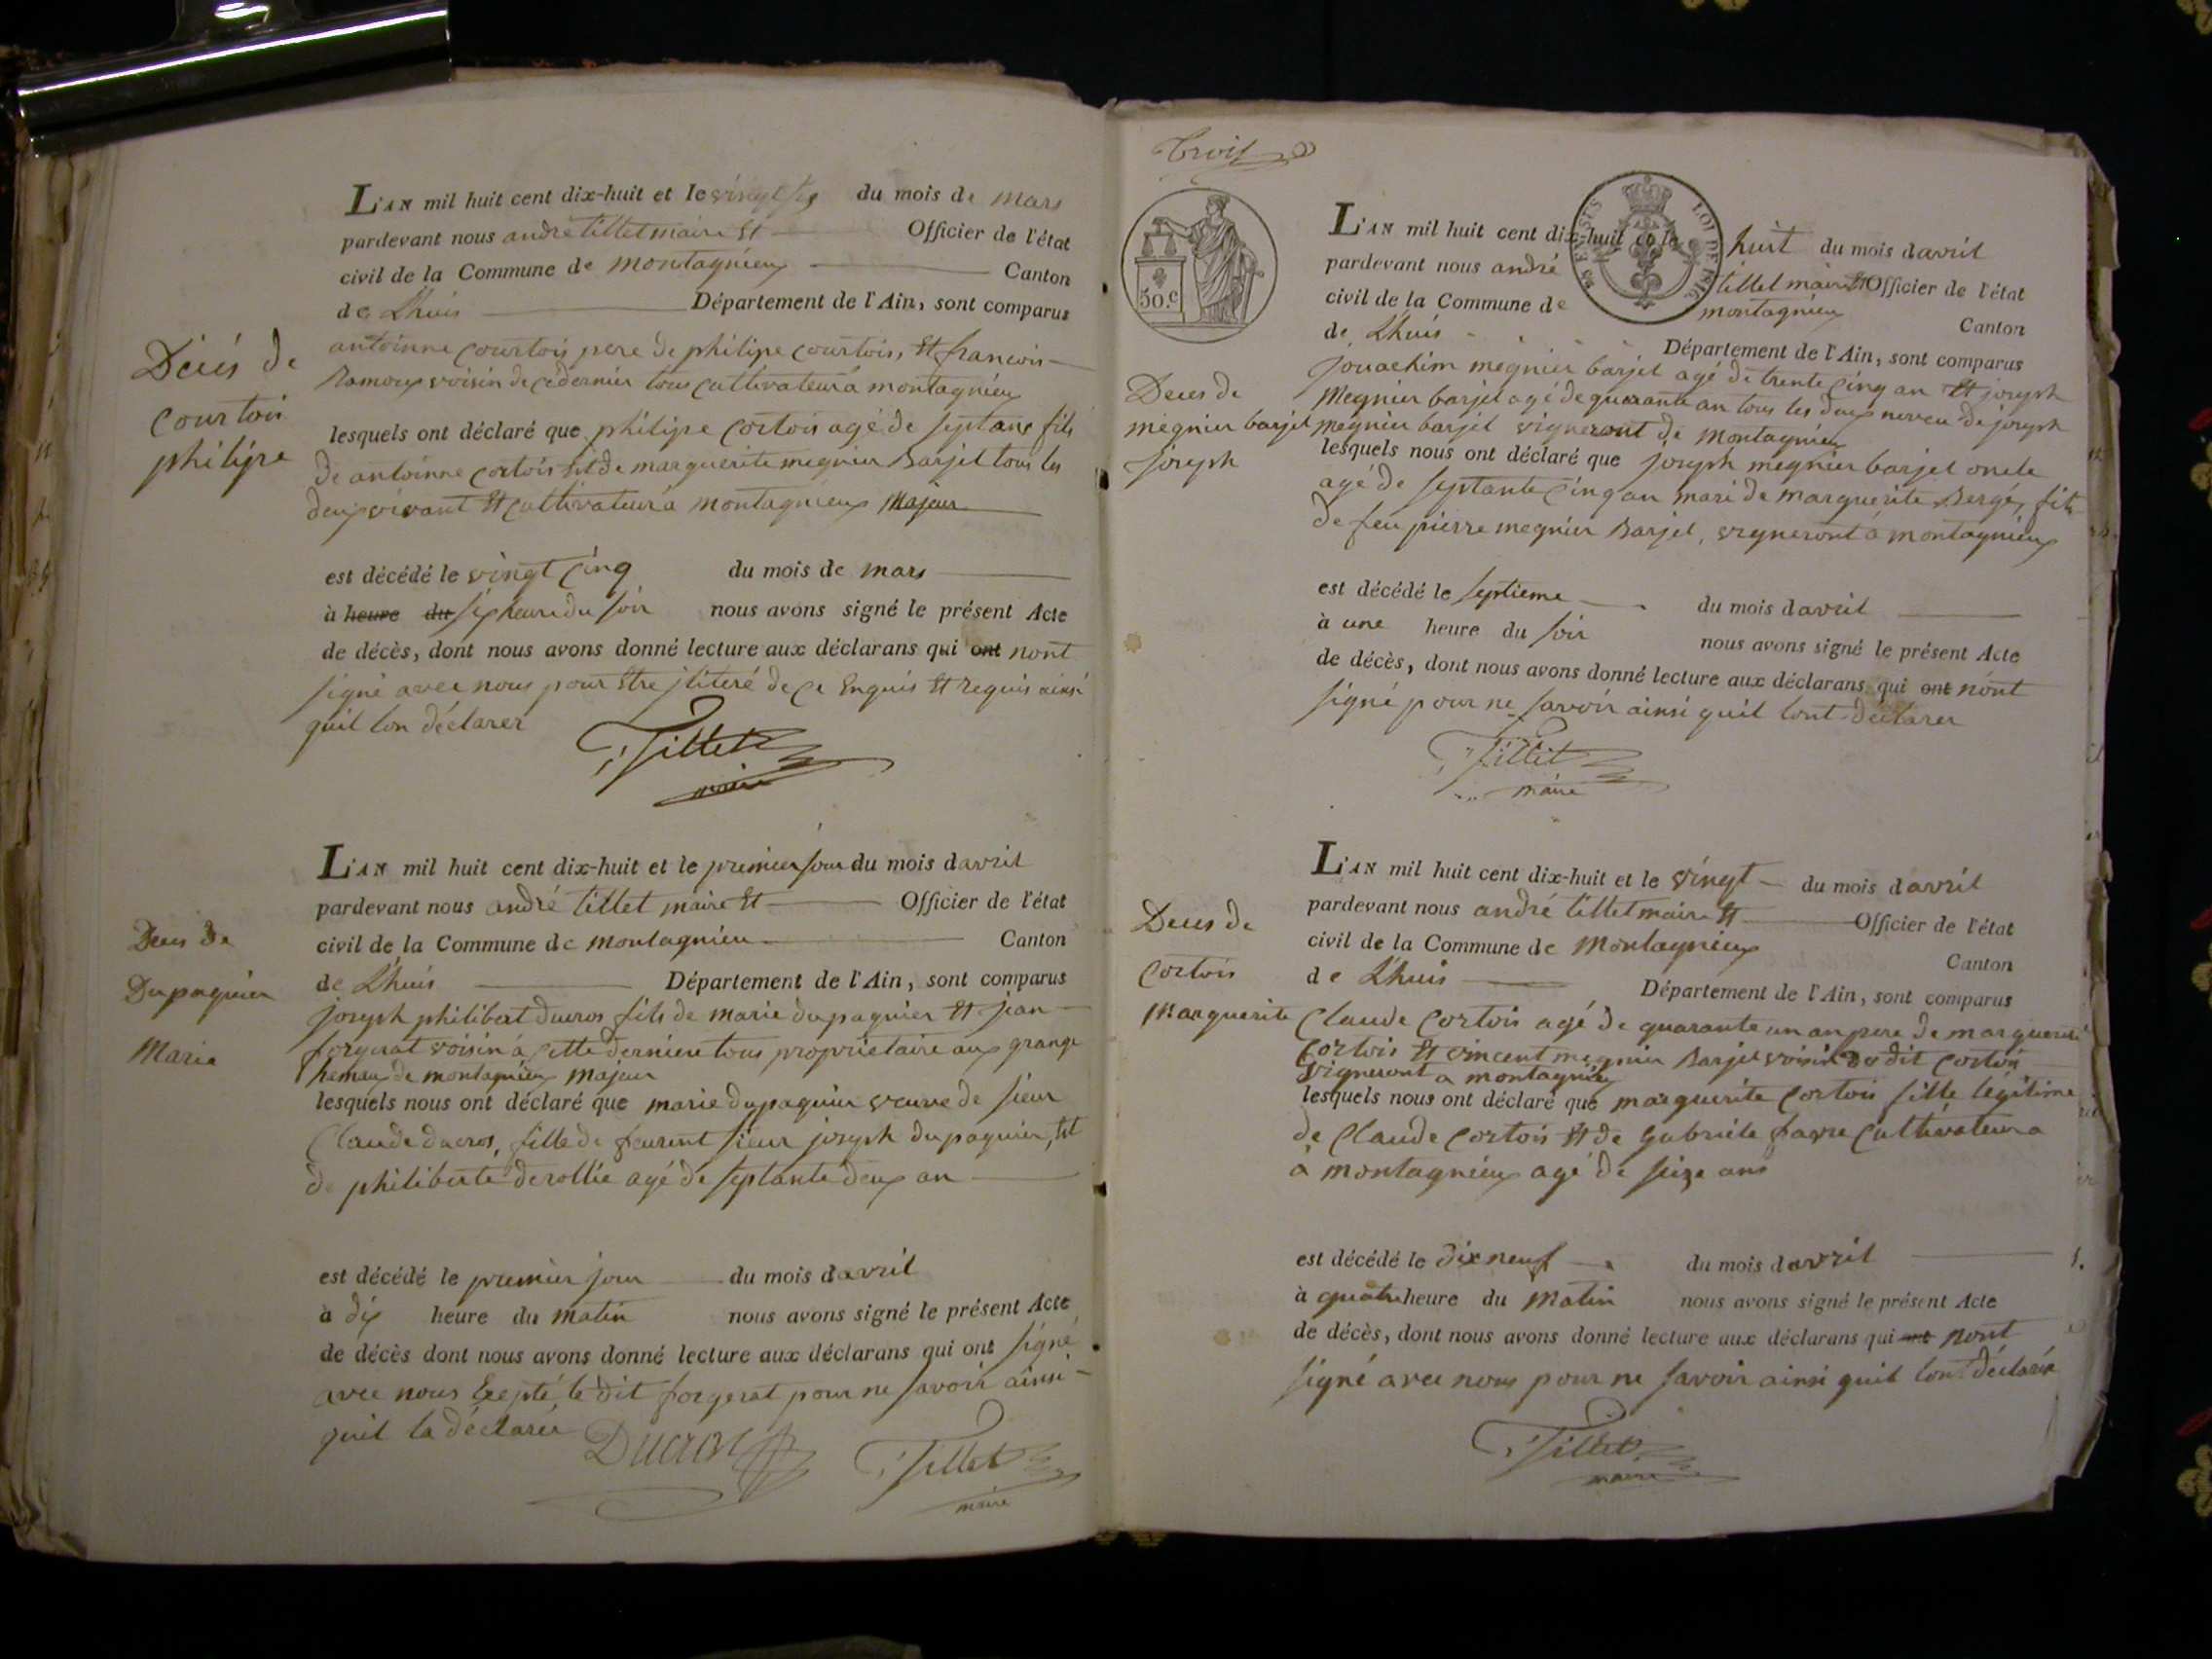 L'AN mil huit cent dix-huit et le vingt six du mois de mars
pardevant nous andré tillet maire Et Officier de l'état
civil de la Commune de montagnieux Canton
de Lhuis Département de l'Ain, sont comparus
antoinne Courtois pere de philipe Courtois, Et francois
Ramoux voisin de ce dernier tous Cultivateur a montagnieux
Décés de
Courtois
philipe
lesquels ont déclaré que philipe Cortois agé de septans fils
de antoinne Cortois Et de marguerite megnier Barjet tous les
deux vivant Et Cultivateur a montagnieux Majeur
est décédé le vingt Cinq du mois de mars
à heure du six heure du soir nous avons signé le présent Acte
de décès, dont nous avons donné lecture aux déclarans qui ont nont
signé avec nous pour Etre jliteré de ce Enquis Et requis ainsi
quil lon déclarer
Tillet
maire
L'AN mil huit cent dix-huit et le premier jour du mois d avril
pardevant nous andré tillet maire Et Officier de l'état
civil de la Commune de montagnieu Canton
de Lhuis Département de l'Ain, sont comparus
Deces De
Dupaquier
Marie
joseph philibert ducros fils de marie dupaquier Et jean
forgerat voisin a Cette derniere tous proprietaire aux grange
hamaux de montagnieux majeur
lesquels nous ont déclaré que marie dupaquier veuve de sieur
Claude ducros, fille de feu sieur joseph dupaquier, Et
de philiberte derollie agé de septante deux an
est décédé le premier jour du mois d avril
à dix heure du matin nous avons signé le présent Acte
de décès dont nous avons donné lecture aux déclarans qui ont signé
avec nous Exepté le dit forgerat pour ne savoir ainsi
quil la déclarer
Ducros
Tillet
maire
trois
50.c
L'AN mil huit cent dix-huit et le huit du mois d avril
pardevant nous andré tillet maire Et Officier de l'état
civil de la Commune de montagnieu Canton
de Lhuis Département de l'Ain, sont comparus
LOI DE 1816
Deces de
megnier barjet
joseph
jouachim megnier barjet agé de trente Cinq an Et joseph
Megnier barjet agé de quarante an tous les deux neveu de joseph
megnier barjet vigneront de montagnieu
lesquels nous ont déclaré que joseph megnier barjet oncle
agé de septante Cinq an mari de marguerite Bergé, fils
de feu pierre megnier Barjet, vigneront a montagnieux
est décédé le septieme du mois d avril
à une heure du soir nous avons signé le présent Acte
de décès, dont nous avons donné lecture aux déclarans qui ont nont
signé pour ne savoir ainsi quil lont déclarer
Tillet
maire
L'AN mil huit cent dix-huit et le vingt du mois d avril
pardevant nous andré tillet maire Et Officier de l'état
civil de la Commune de Montagnieux Canton
de Lhuis Département de l'Ain, sont comparus
Deces de
Cortois
Marguerite
Claude Cortois agé de quarante un an pere de marguerite
Cortois Et vincent megnier Barjet voisin du dit Cortois
vigneront a montagnieu
lesquels nous ont déclaré que marguerite Cortois fille legitime
de Claude Cortois Et de gabriele favre Cultivateur a
a montagnieux agé de seize ans
est décédé le dix neuf du mois d avril
à quatre heure du Matin nous avons signé le présent Acte
de décès, dont nous avons donné lecture aux déclarans qui ont nont
signé avec nous pour ne savoir ainsi quil lont déclarer
Tillet
maire